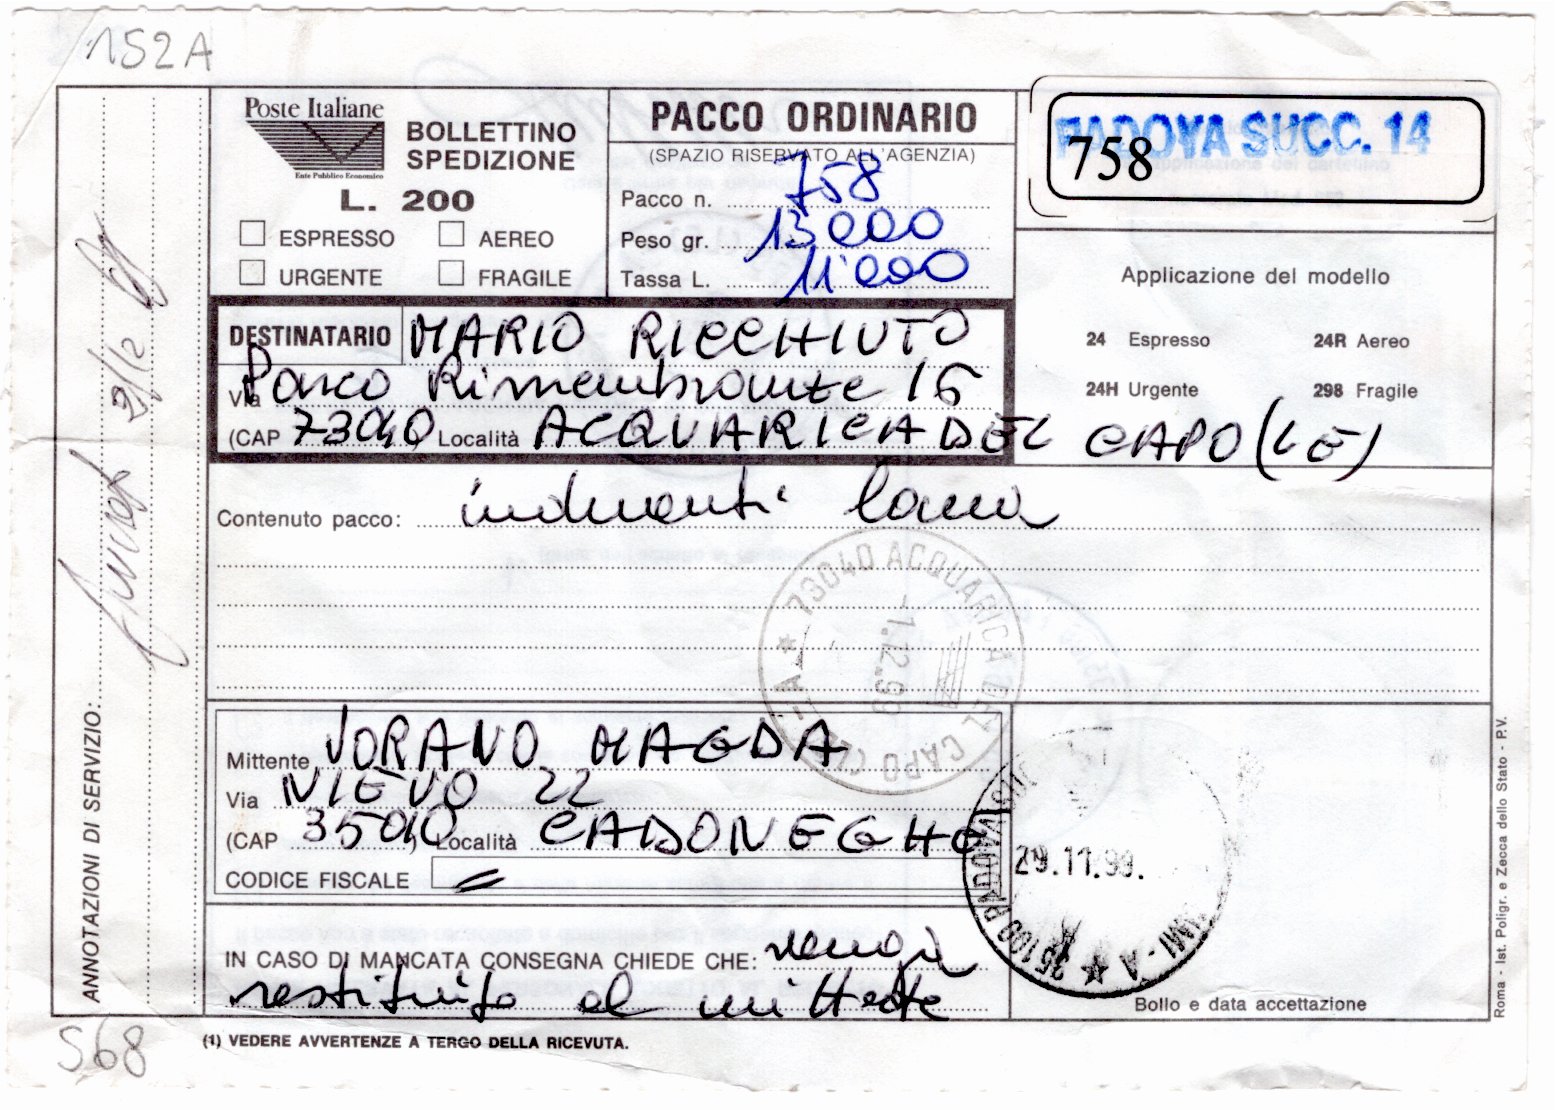 152A
Poste Italiane
Ente Pubblico Economico
BOLLETTINO
SPEDIZIONE
L. 200
ESPRESSO AEREO
URGENTE FRAGILE
PACCO ORDINARIO
(SPAZIO RISERVATO ALL'AGENZIA)
Pacco n. 758
Peso gr. 13000
Tassa L. 11'000
PADOVA SUCC. 14
758
Applicazione del modello
24 Espresso 24R Aereo
24H Urgente 298 Fragile
DESTINATARIO MARIO RICCHIUTO
Via Parco Rimembranze 16
(CAP 73040 Località ACQUARICA DEL CAPO (LE)
Contenuto pacco: indumenti lana
73040 ACQUARICA DEL CAPO
1.12.99
ANNOTAZIONI DI SERVIZIO:
2/12
Mittente VORANO MAGDA
Via NIEVO 22
(CAP 35010) Località CADONEGHE
CODICE FISCALE
35100 PADOVA
29.11.99.
IN CASO DI MANCATA CONSEGNA CHIEDE CHE: venga
restituito al mittente
Bollo e data accettazione
Roma - Ist. Poligr. e Zecca dello Stato - P.V.
S68
(1) VEDERE AVVERTENZE A TERGO DELLA RICEVUTA.